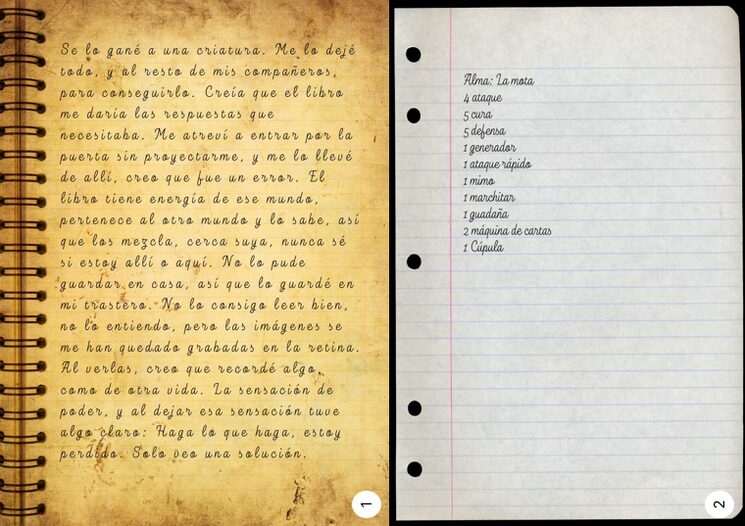 Se lo gané a una criatura. Me lo dejé
todo, y al resto de mis compañeros,
para conseguirlo. Creía que el libro
me daría las respuestas que
necesitaba. Me atreví a entrar por la
puerta sin proyectarme, y me lo llevé
de allí, creo que fue un error. El
libro tiene energía de ese mundo,
pertenece al otro mundo y lo sabe, así
que los mezcla, cerca suya, nunca sé
si estoy allí o aquí. No lo pude
guardar en casa, así que lo guardé en
mi trastero. No lo consigo leer bien,
no lo entiendo, pero las imágenes se
me han quedado grabadas en la retina.
Al verlas, creo que recordé algo,
como de otra vida. La sensación de
poder, y al dejar esa sensación tuve
algo claro: Haga lo que haga, estoy
perdido. Solo veo una solución.
1
Alma: La mota
4 ataque
5 cura
5 defensa
1 generador
1 ataque rápido
1 mimo
1 marchitar
1 guadaña
2 máquina de cartas
1 Cúpula
2